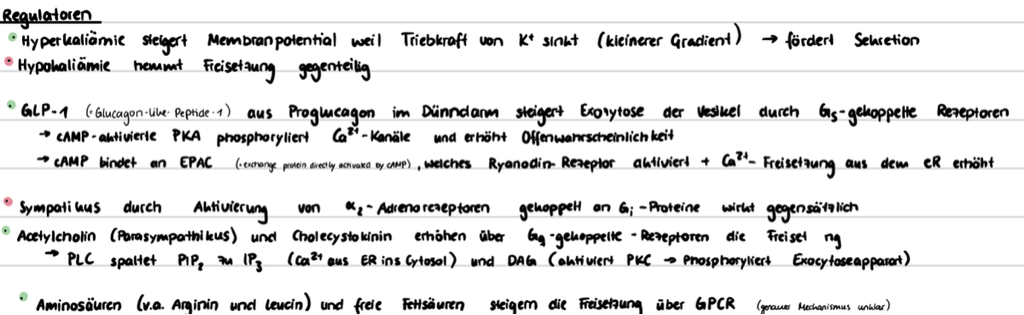 Regulatoren
Hyperkaliämie steigert Membranpotential weil Triebkraft von K⁺ sinkt (kleinerer Gradient) → fördert Sekretion
Hypokaliämie hemmt Freisetzung gegenteilig
GLP-1 (=Glucagon-Like-Peptide-1) aus Proglucagon im Dünndarm steigert Exozytose der Vesikel durch Gs-gekoppelte Rezeptoren
→ cAMP-aktivierte PKA phosphoryliert Ca²⁺-Kanäle und erhöht Offenwahrscheinlichkeit
→ cAMP bindet an EPAC (=exchange protein directly activated by cAMP), welches Ryanodin-Rezeptor aktiviert + Ca²⁺-Freisetzung aus dem eR erhöht
Sympatikus durch Aktivierung von α₂-Adrenorezeptoren gekoppelt an Gi-Proteine wirkt gegensätzlich
Acetylcholin (Parasympathikus) und Cholecystokinin erhöhen über Gq-gekoppelte-Rezeptoren die Freiset ng
→ PLC spaltet PiP₂ zu IP₃ (Ca²⁺ aus ER ins Cytosol) und DAG (aktiviert PKC → Phosphoryliert Exocytoseapparat)
Aminosäuren (v.a. Arginin und Leucin) und freie Fettsäuren steigern die Freisetzung über GPCR (genauer Mechanismus unklar)